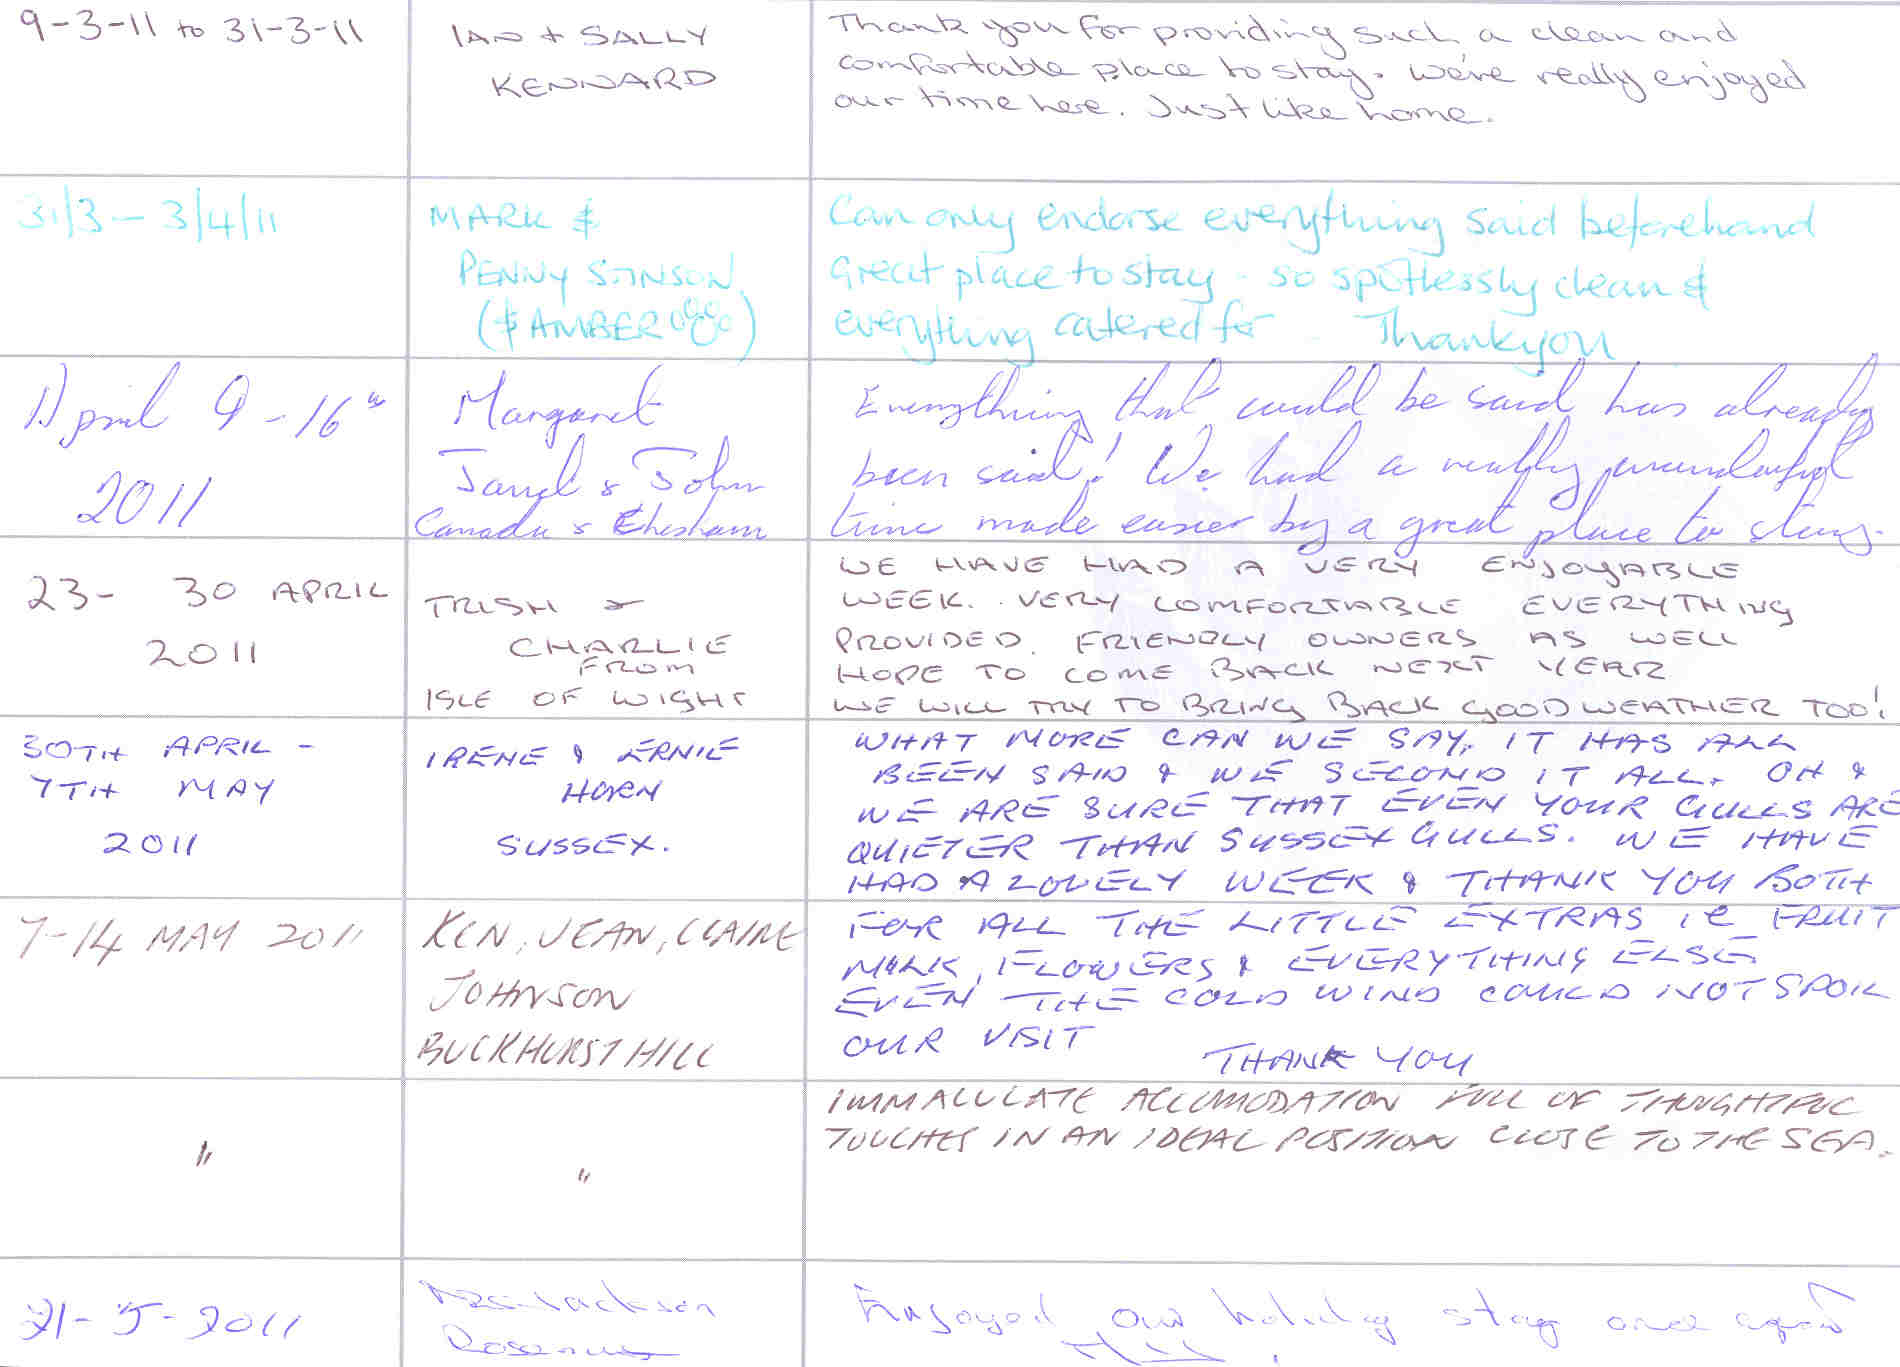 9-3-11 to 31-3-11
IAN + SALLY
KENNARD
Thank you for providing such a clean and
comfortable place to stay. We've really enjoyed
our time here. Just like home.
31/3 - 3/4/11
MARK &
PENNY STINSON
(& AMBER)
Can only endorse everything said beforehand
Great place to stay - so spotlessly clean &
everything catered for Thankyou
April 9 - 16th
2011
Margaret
Janet & John
Canada & Chesham
Everything that could be said has already
been said! We had a really wonderful
time made easier by a great place to stay.
23- 30 APRIL
2011
TRISH &
CHARLIE
FROM
ISLE OF WIGHT
WE HAVE HAD A VERY ENJOYABLE
WEEK. VERY COMFORTABLE EVERYTHING
PROVIDED. FRIENDLY OWNERS AS WELL
HOPE TO COME BACK NEXT YEAR
WE WILL TRY TO BRING BACK GOOD WEATHER TOO!
30TH APRIL -
7TH MAY
2011
IRENE & ERNIE
HORN
SUSSEX.
WHAT MORE CAN WE SAY, IT HAS ALL
BEEN SAID & WE SECOND IT ALL. OH &
WE ARE SURE THAT EVEN YOUR GULLS ARE
QUIETER THAN SUSSEX GULLS. WE HAVE
HAD A LOVELY WEEK & THANK YOU BOTH
FOR ALL THE LITTLE EXTRAS IE FRUIT
MILK, FLOWERS & EVERYTHING ELSE
EVEN THE COLD WIND COULD NOT SPOIL
OUR VISIT
THANK YOU
7-14 MAY 2011
KEN, JEAN, CLAIRE
JOHNSON
BUCKHURST HILL
"
"
IMMACULATE ACCOMODATION FULL OF THOUGHTFUL
TOUCHES IN AN IDEAL POSITION CLOSE TO THE SEA.
21-5-2011
Jackson
Enjoyed our holiday stay once again